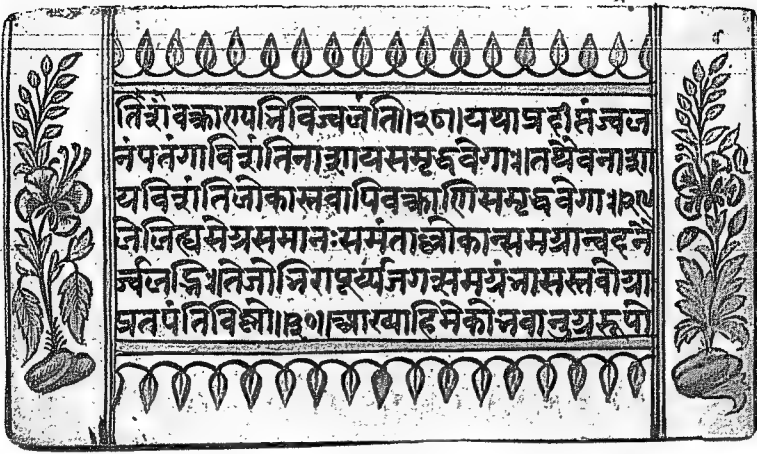 वक्त्राण्यभिविज्वलंति॥२८॥यथाप्रदीप्तंज्वल
नंपतंगाविशंतिनाशायसमृद्धवेगाः॥तथैवनाशा
यविशंतिलोकास्तवापिवक्त्राणिसमृद्धवेगाः॥२९
लेलिह्यसेग्रसमानःसमंताल्लोकान्समग्रान्वदनै
र्ज्वलद्भिः॥तेजोभिरापूर्य्यजगत्समग्रंभासस्तवोग्रा
प्रतपंतिविष्णो॥३०॥आख्याहिमेकोभवानुग्ररूपो